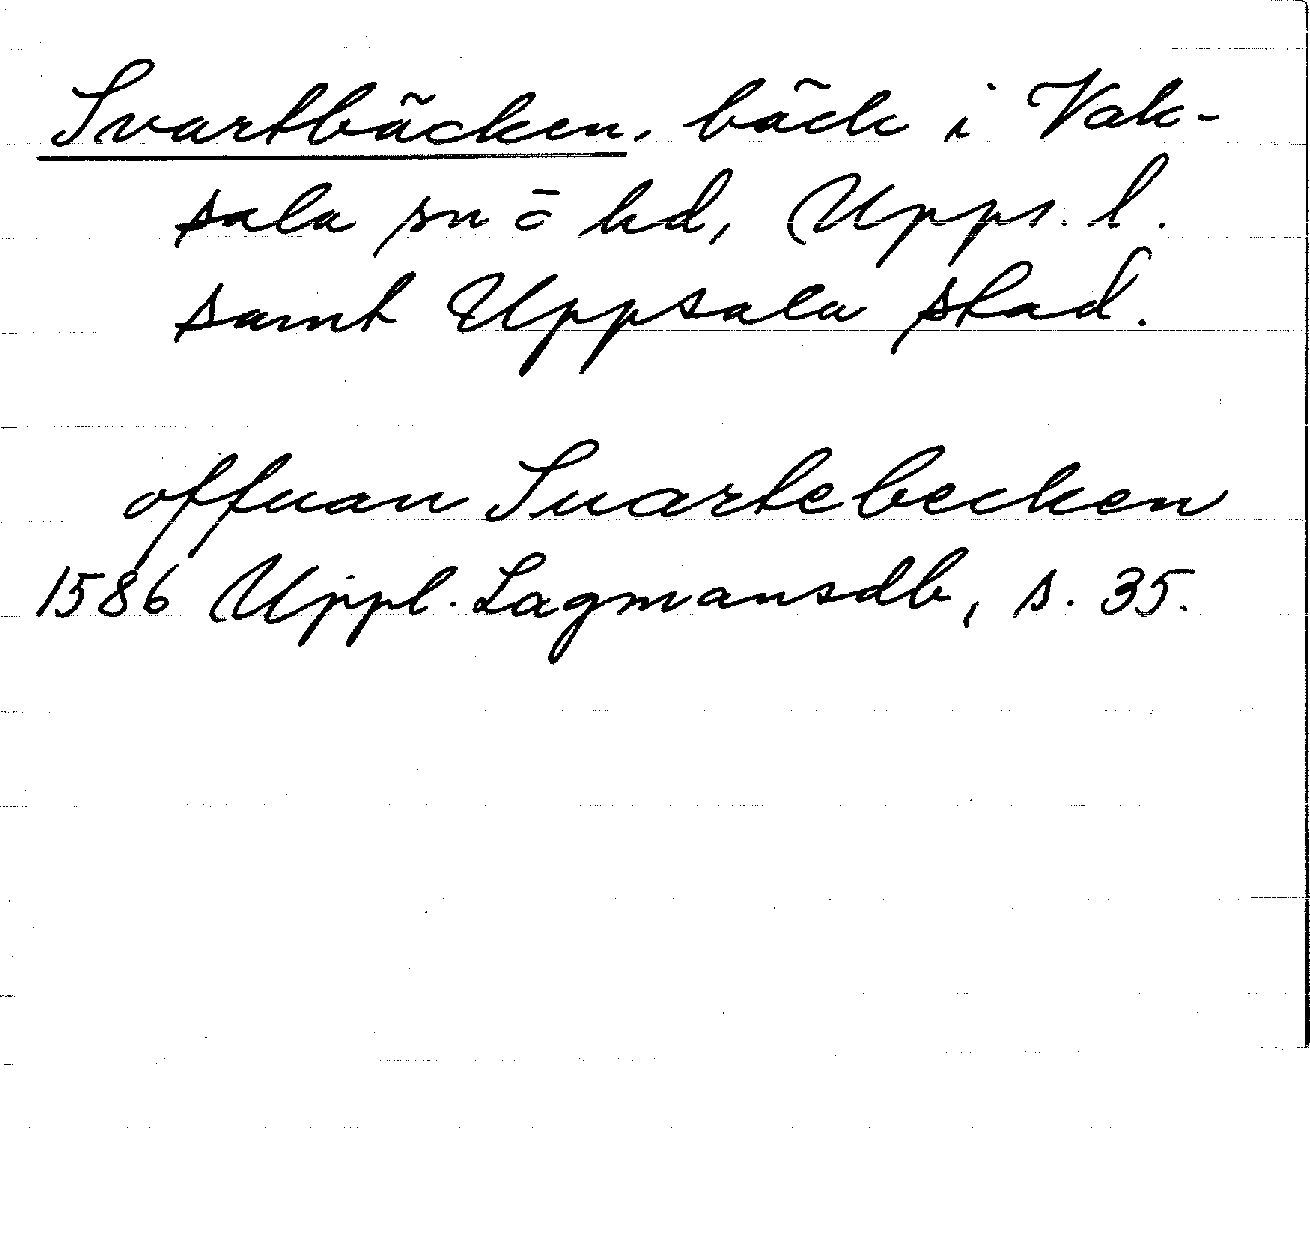 Svartbäcken, bäck i Vak-
sala sn o hd, Upps. l.
samt Uppsala stad.
offuan Suartebecken
1586 Uppl. Lagmansdb, s. 35.